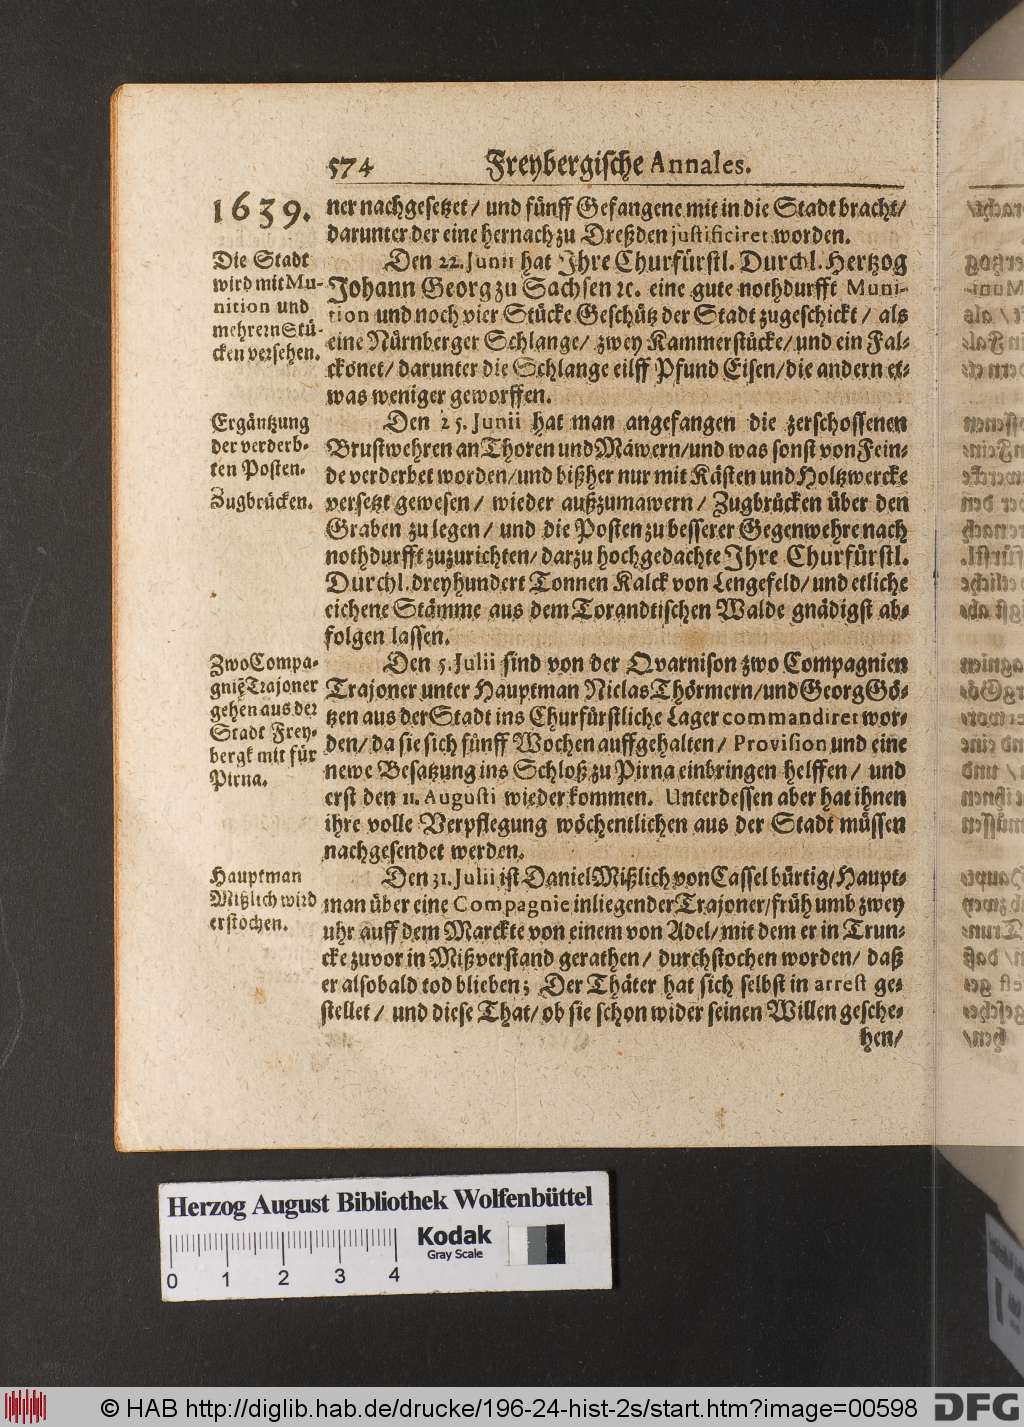 574 Freybergische Annales.
1639.
ner nachgesetzet / und fünff Gefangene mit in die Stadt bracht /
darunter der eine hernach zu Dreßden justificiret worden.
Die Stadt
wird mit Mu-
nition und
mehrern Stü-
cken versehen.
Den 22. Junii hat Ihre Churfürstl. Durchl. Hertzog
Johann Georg zu Sachsen ꝛc. eine gute nothdurfft Muni-
tion und noch vier Stücke Geschütz der Stadt zugeschickt / als
eine Nürnberger Schlange / zwey Kammerstücke / und ein Fal-
ckonet / darunter die Schlange eilff Pfund Eisen / die andern et-
was weniger geworffen.
Ergäntzung
der verderb-
ten Posten.
Zugbrücken.
Den 25. Junii hat man angefangen die zerschossenen
Brustwehren an Thoren und Mäwern / und was sonst von Fein-
de verderbet worden / und bißher nur mit Kästen und Holtzwercke
versetzt gewesen / wieder außzumawern / Zugbrücken über den
Graben zu legen / und die Posten zu besserer Gegenwehre nach
nothdurfft zuzurichten / darzu hochgedachte Ihre Churfürstl.
Durchl. dreyhundert Tonnen Kalck von Lengefeld / und etliche
eichene Stämme aus dem Torandtischen Walde gnädigst ab-
folgen lassen.
Zwo Compa-
gniẽ Trajoner
gehen aus der
Stadt Frey-
bergk mit für
Pirna.
Den 5. Julii sind von der Qvarnison zwo Compagnien
Trajoner unter Hauptman Niclas Thörmern / und Georg Gö-
tzen aus der Stadt ins Churfürstliche Lager commandiret wor-
den / da sie sich fünff Wochen auffgehalten / Provision und eine
newe Besatzung ins Schloß zu Pirna einbringen helffen / und
erst den 11. Augusti wieder kommen. Unterdessen aber hat ihnen
ihre volle Verpflegung wöchentlichen aus der Stadt müssen
nachgesendet werden.
Hauptman
Mißlich wird
erstochen.
Den 31. Julii ist Daniel Mißlich von Cassel bürtig / Haupt-
man über eine Compagnie inliegender Trajoner / früh umb zwey
uhr auff dem Marckte von einem von Adel / mit dem er in Trun-
cke zuvor in Mißverstand gerathen / durchstochen worden / daß
er alsobald tod blieben; Der Thäter hat sich selbst in arrest ge-
stellet / und diese That / ob sie schon wider seinen Willen gesche-
hen /
Herzog August Bibliothek Wolfenbüttel
Kodak
Gray Scale
0 1 2 3 4
© HAB http://diglib.hab.de/drucke/196-24-hist-2s/start.htm?image=00598 DFG